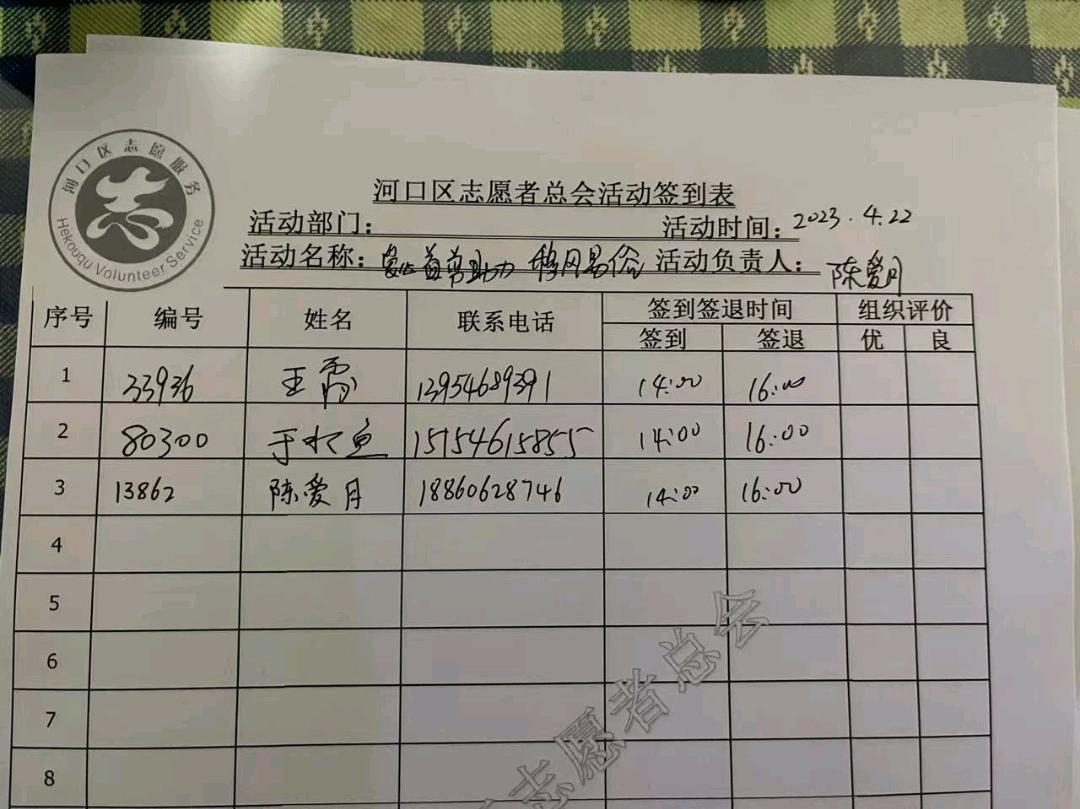 河口区志愿服务
Hekouqu Volunteer Service
河口区志愿者总会活动签到表
活动部门： 活动时间：2023.4.22
活动名称： 助力 移风易俗 活动负责人：陈爱月
序号 编号 姓名 联系电话 签到签退时间 组织评价
签到 签退 优 良
1 33936 王霞 13954689391 14:00 16:00
2 80300 于 15154615855 14:00 16:00
3 13862 陈爱月 18860628746 14:00 16:00
4
5
6
7
8
志愿者总会